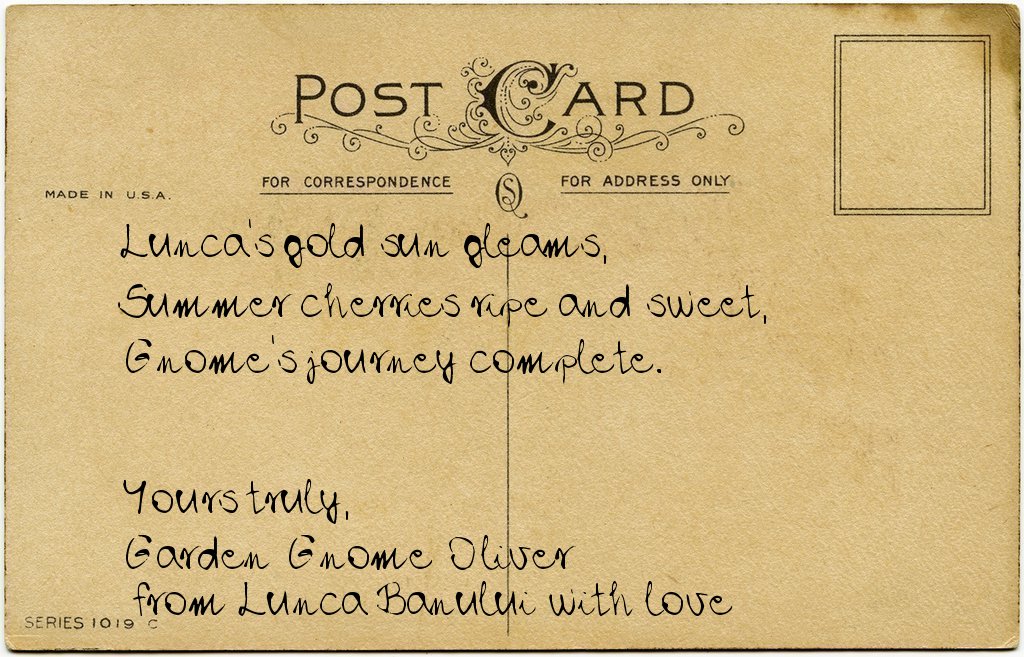 POST CARD
FOR CORRESPONDENCE
FOR ADDRESS ONLY
MADE IN U.S.A.
Lunca's gold sun gleams,
Summer cherries ripe and sweet,
Gnome's journey complete.
Yours truly,
Garden Gnome Oliver
from Lunca Banului with love
SERIES 1019 C